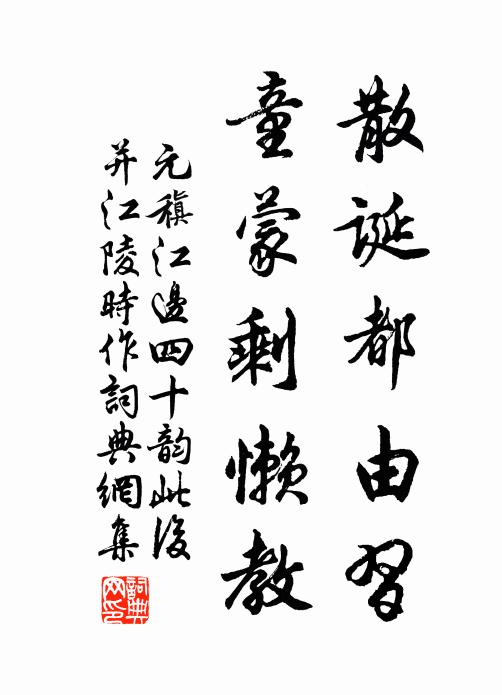 散誕都由習
童蒙剩懶教
元稹江邊四十韵此後
并江陵時作詞典網集
詞典网印